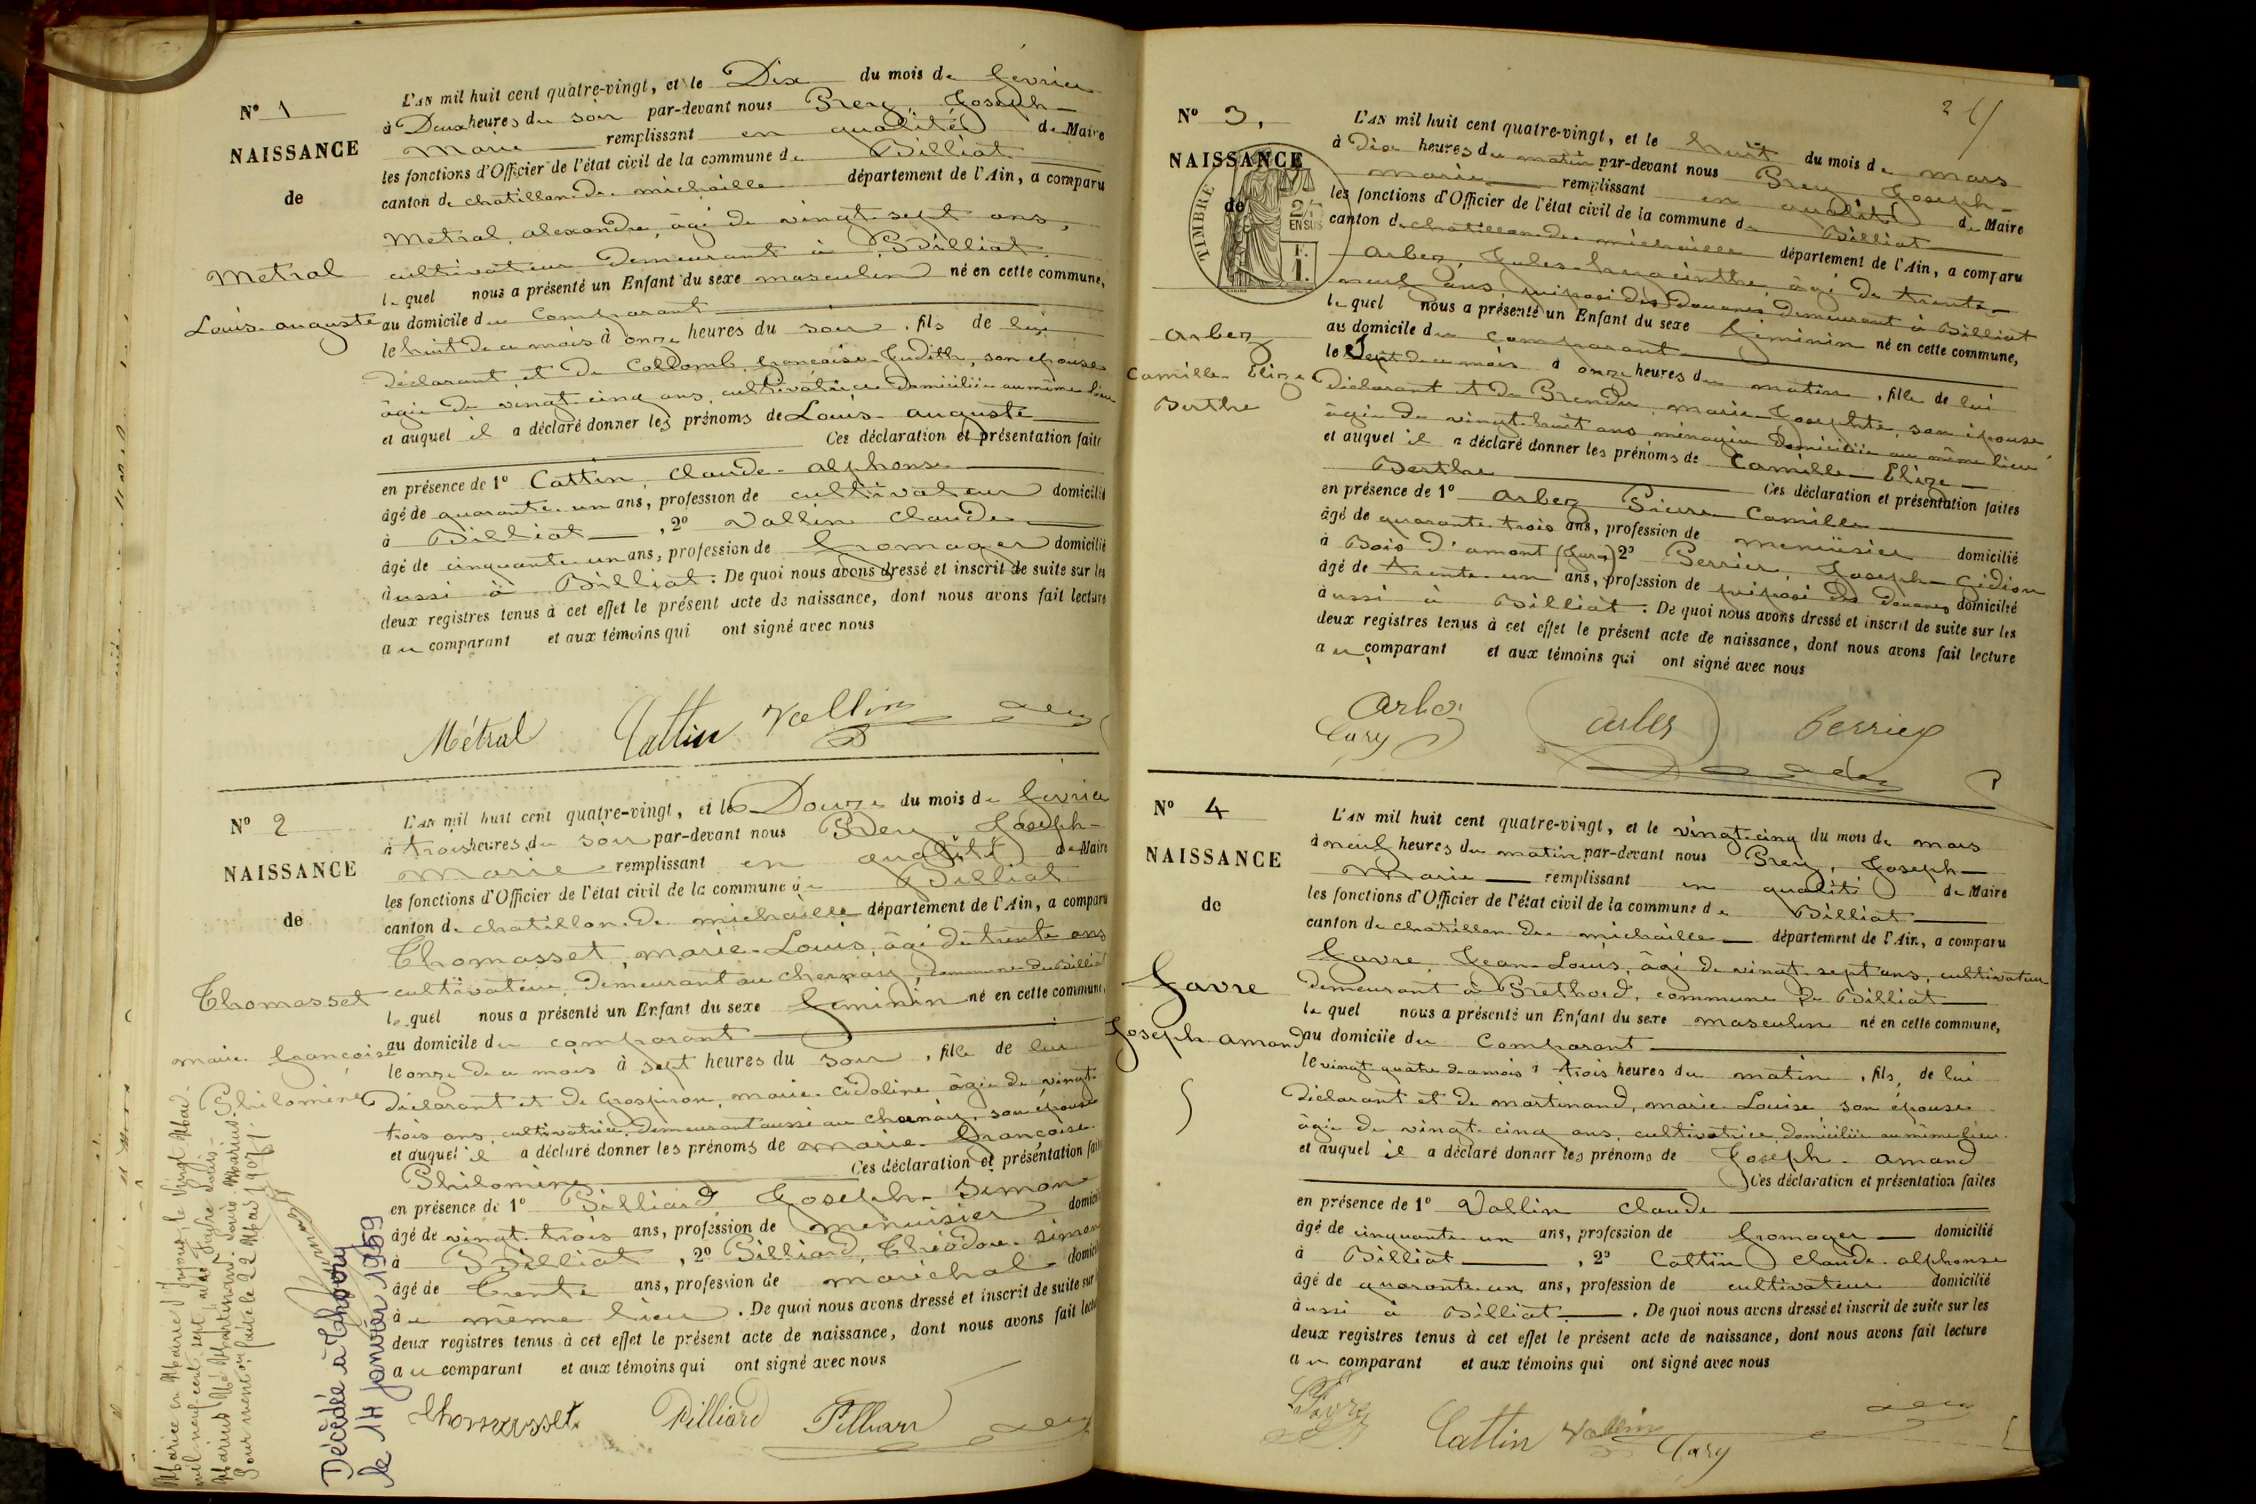 N° 1
NAISSANCE
de
Metral
Louis-auguste
L'AN mil huit cent quatre-vingt, et le Dix du mois de fevrier
à Deux heures du soir par-devant nous Prey, Joseph-
Marie remplissant en qualité de Maire
les fonctions d'Officier de l'état civil de la commune de Billiat
canton de chatillon-de-michaille département de l'Ain, a comparu
Metral, alexandre, âgé de vingt-sept ans,
cultivateur demeurant à Billiat
lequel nous a présenté un Enfant du sexe masculin né en cette commune,
au domicile du comparant
le huit de ce mois à onze heures du soir, fils de lui
déclarant et de Collomb, françoise-Judith, son épouse
âgée de vingt-cinq ans, cultivatrice domiciliée au même lieu
et auquel il a déclaré donner les prénoms de Louis-auguste
Ces déclaration et présentation faites
en présence de 1° Cattin, claude-alphonse
âgé de quarante-un ans, profession de cultivateur domicilié
à Billiat, 2° Vallin claude
âgé de cinquante un ans, profession de fromager domicilié
aussi à Billiat. De quoi nous avons dressé et inscrit de suite sur les
deux registres tenus à cet effet le présent acte de naissance, dont nous avons fait lecture
au comparant et aux témoins qui ont signé avec nous
Métral Cattin Vallin
N° 2
NAISSANCE
de
Thomasset
marie françoise
Philomène
L'AN mil huit cent quatre-vingt, et le Douze du mois de fevrier
à trois heures du soir par-devant nous Prey Joseph-
Marie remplissant en qualité de Maire
les fonctions d'Officier de l'état civil de la commune de Billiat
canton de chatillon-de-michaille département de l'Ain, a comparu
Thomasset, marie-Louis, âgé de trente ans
cultivateur, demeurant au chernay, commune de Billiat
lequel nous a présenté un Enfant du sexe féminin né en cette commune,
au domicile du comparant
le onze de ce mois à sept heures du soir, fille de lui
déclarant et de Grospiron, marie- âgée de vingt-
trois ans, cultivatrice, demeurant aussi au chernay, son épouse
et auquel il a déclaré donner les prénoms de marie-françoise
Philomène Ces déclaration et présentation faites
en présence de 1° Pilliard Joseph-Simon
âgé de vingt-trois ans, profession de menuisier domicilié
à Billiat, 2° Pilliard, Théodore-simon
âgé de trente ans, profession de maréchal domicilié
au même lieu. De quoi nous avons dressé et inscrit de suite sur
deux registres tenus à cet effet le présent acte de naissance, dont nous avons fait lecture
au comparant et aux témoins qui ont signé avec nous
Thomasset Pilliard Pilliard
Mariée en Mairie d'Injoux, le vingt Mai
mil neuf cent sept, avec
Marius Martinand, Louis-Marius.
Pour mention faite le 22 Mai 1907.
Décédée à Thoiry
le 14 janvier 1959
N° 3,
NAISSANCE
de
TIMBRE
Arbez
Camille Elize
Berthe
L'AN mil huit cent quatre-vingt, et le huit du mois de mars
à dix heures du matin par-devant nous Prey Joseph-
Marie remplissant en qualité de Maire
les fonctions d'Officier de l'état civil de la commune de Billiat
canton de chatillon-de-michaille département de l'Ain, a comparu
Arbez, Jules-hyacinthe, âgé de trente-
neuf ans, préposé des Douanes demeurant à Billiat
lequel nous a présenté un Enfant du sexe féminin né en cette commune,
au domicile du comparant
le sept de ce mois à onze heures du matin, fille de lui
déclarant et de marie-Josephte, son épouse
âgée de vingt-huit ans ménagère domiciliée au même lieu
et auquel il a déclaré donner les prénoms de Camille-Elize-
Berthe Ces déclaration et présentation faites
en présence de 1° Arbez Pierre Camille
âgé de quarante-trois ans, profession de menuisier domicilié
à Bois d'amont (Jura) 2° Perrier, Joseph-Gédéon
âgé de trente-un ans, profession de préposé des douanes domicilié
aussi à Billiat. De quoi nous avons dressé et inscrit de suite sur les
deux registres tenus à cet effet le présent acte de naissance, dont nous avons fait lecture
au comparant et aux témoins qui ont signé avec nous
Arbez arbez Perrier
N° 4
NAISSANCE
de
Favre
Joseph-amand
L'AN mil huit cent quatre-vingt, et le vingt-cinq du mois de mars
à neuf heures du matin par-devant nous Prey, Joseph-
Marie remplissant en qualité de Maire
les fonctions d'Officier de l'état civil de la commune de Billiat
canton de chatillon-de-michaille département de l'Ain, a comparu
Favre, Jean-Louis, âgé de vingt-sept ans, cultivateur
demeurant à commune de Billiat
lequel nous a présenté un Enfant du sexe masculin né en cette commune,
au domicile du comparant
le vingt quatre de ce mois à trois heures du matin, fils de lui
déclarant et de martinand, marie-Louise son épouse
âgée de vingt-cinq ans, cultivatrice, domiciliée au même lieu.
et auquel il a déclaré donner les prénoms de Joseph-amand
Ces déclaration et présentation faites
en présence de 1° Vallin claude
âgé de cinquante-un ans, profession de fromager domicilié
à Billiat, 2° Cattin claude-alphonse
âgé de quarante-un ans, profession de cultivateur domicilié
aussi à Billiat. De quoi nous avons dressé et inscrit de suite sur les
deux registres tenus à cet effet le présent acte de naissance, dont nous avons fait lecture
au comparant et aux témoins qui ont signé avec nous
Favre Cattin Vallin